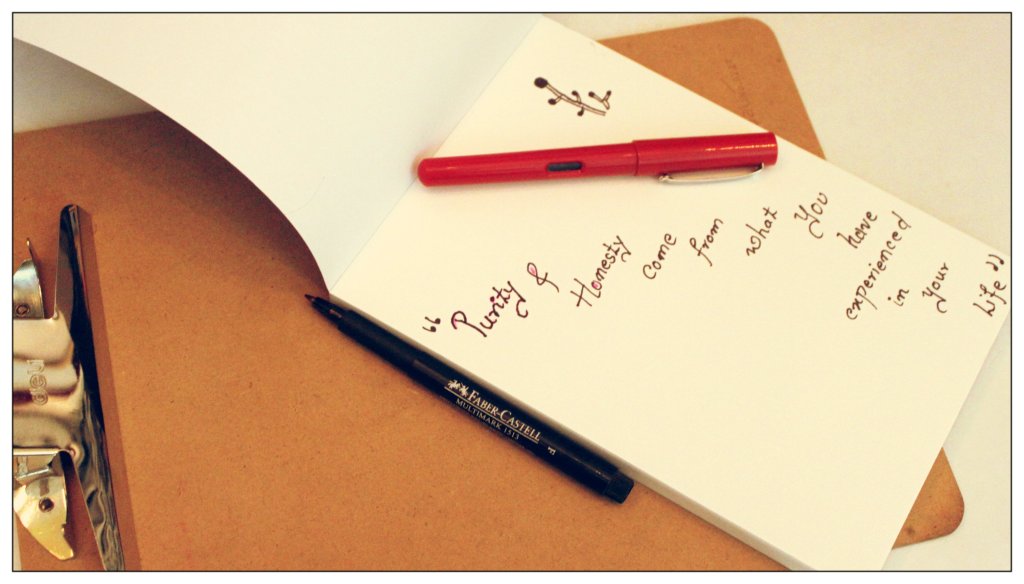 “ Purity &
Honesty
come
from
what
You
have
experienced
in your
life ”
FABER-CASTELL
MULTIMARK 1513
F
deli